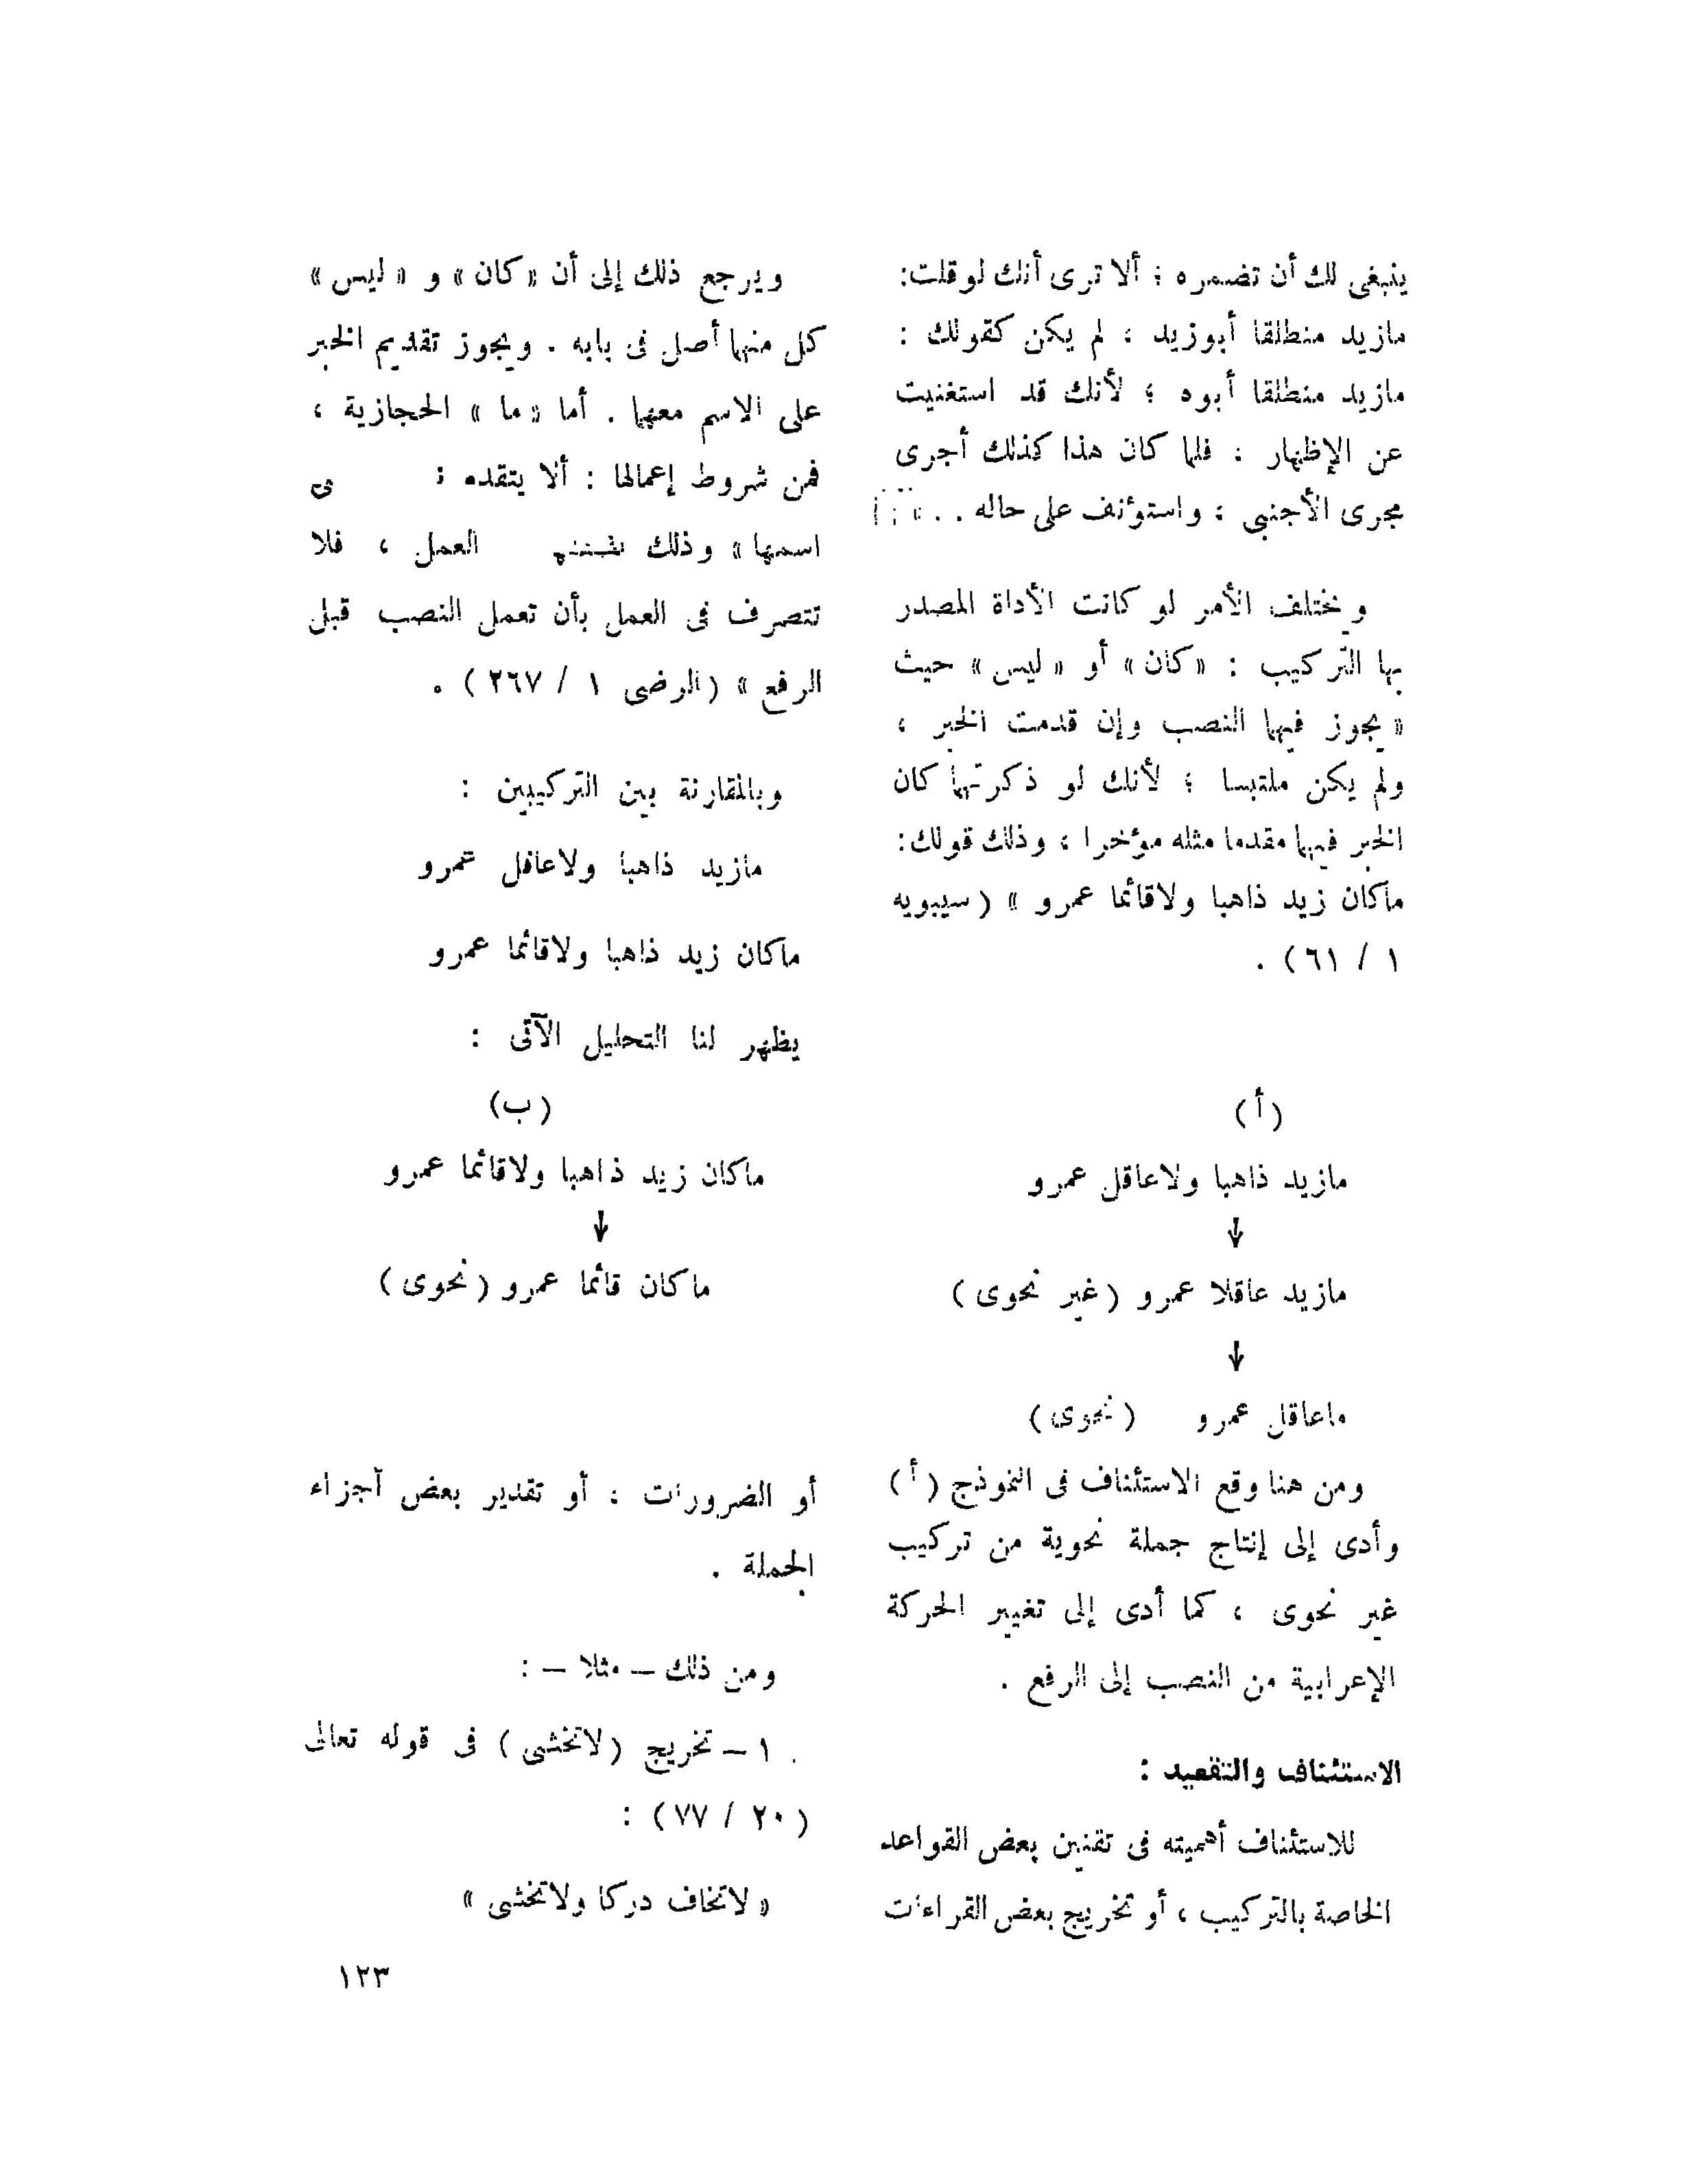 ينبغى لك أن تضمره ؛ ألا ترى أنك لو قلت:
مازيد منطلقا أبوزيد ، لم يكن كقولك :
مازيد منطلقا أبوه ؛ لأنك قد استغنيت
عن الإظهار ، فلما كان هذا كذلك أجرى
مجرى الأجنبى ، واستؤنف على حاله . .
ويختلف الأمر لو كانت الأداة المصدر
بها التركيب : «كان» أو «ليس» حيث
«يجوز فيها النصب وإن قدمت الخبر ،
ولم يكن ملتبسا ؛ لأنك لو ذكرتها كان
الخبر فيها مقدما مثله مؤخرا ، وذلك قولك:
ماكان زيد ذاهبا ولاقائما عمرو » (سيبويه
١ / ٦١) .
ويرجع ذلك إلى أن «كان» و «ليس»
كل منها أصل فى بابه . ويجوز تقديم الخبر
على الاسم معها . أما «ما» الحجازية ،
فمن شروط إعمالها : ألا يتقدم
اسمها» وذلك العمل ، فلا
تتصرف فى العمل بأن تعمل النصب قبل
الرفع » (الرضى ١ / ٢٦٧) .
وبالمقارنة بين التركيبين :
مازيد ذاهبا ولاعاقل عمرو
ماكان زيد ذاهبا ولاقائما عمرو
يظهر لنا التحليل الآتى :
(أ)
مازيد ذاهبا ولاعاقل عمرو
↓
مازيد عاقلا عمرو (غير نحوى)
↓
ماعاقل عمرو (نحوى)
(ب)
ماكان زيد ذاهبا ولاقائما عمرو
↓
ماكان قائما عمرو (نحوى)
ومن هنا وقع الاستئناف فى النموذج (أ)
وأدى إلى إنتاج جملة نحوية من تركيب
غير نحوى ، كما أدى إلى تغيير الحركة
الإعرابية من النصب إلى الرفع .
الاستئناف والتقعيد :
للاستئناف أهميته فى تقنين بعض القواعد
الخاصة بالتركيب ، أو تخريج بعض القراءات
أو الضرورات ، أو تقدير بعض أجزاء
الجملة .
ومن ذلك – مثلا – :
١ – تخريج (لاتخشى) فى قوله تعالى
(٢٠ / ٧٧) :
«لاتخاف دركا ولاتخشى»
١٢٣